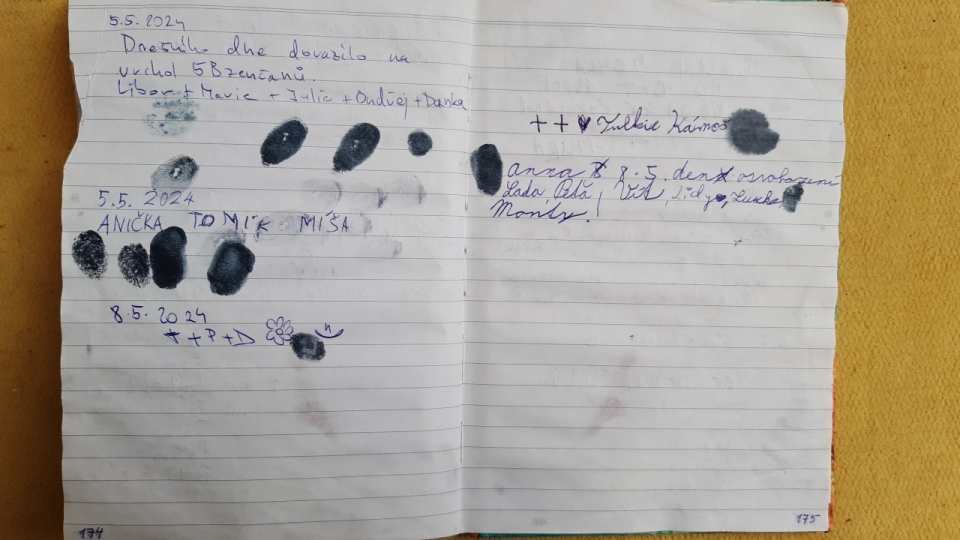 5.5. 2024
Dnešního dne dorazilo na
vrchol 5 Brenčanů.
Libor + Marie + Julie + Ondřej + Danka
5.5. 2024
ANIČKA TOMIK MIŠA
8.5. 2024
+ + P + D
174
+ + Kámoš
anna 8.5. den osvobození
Lada, Péťa, Vít,
175